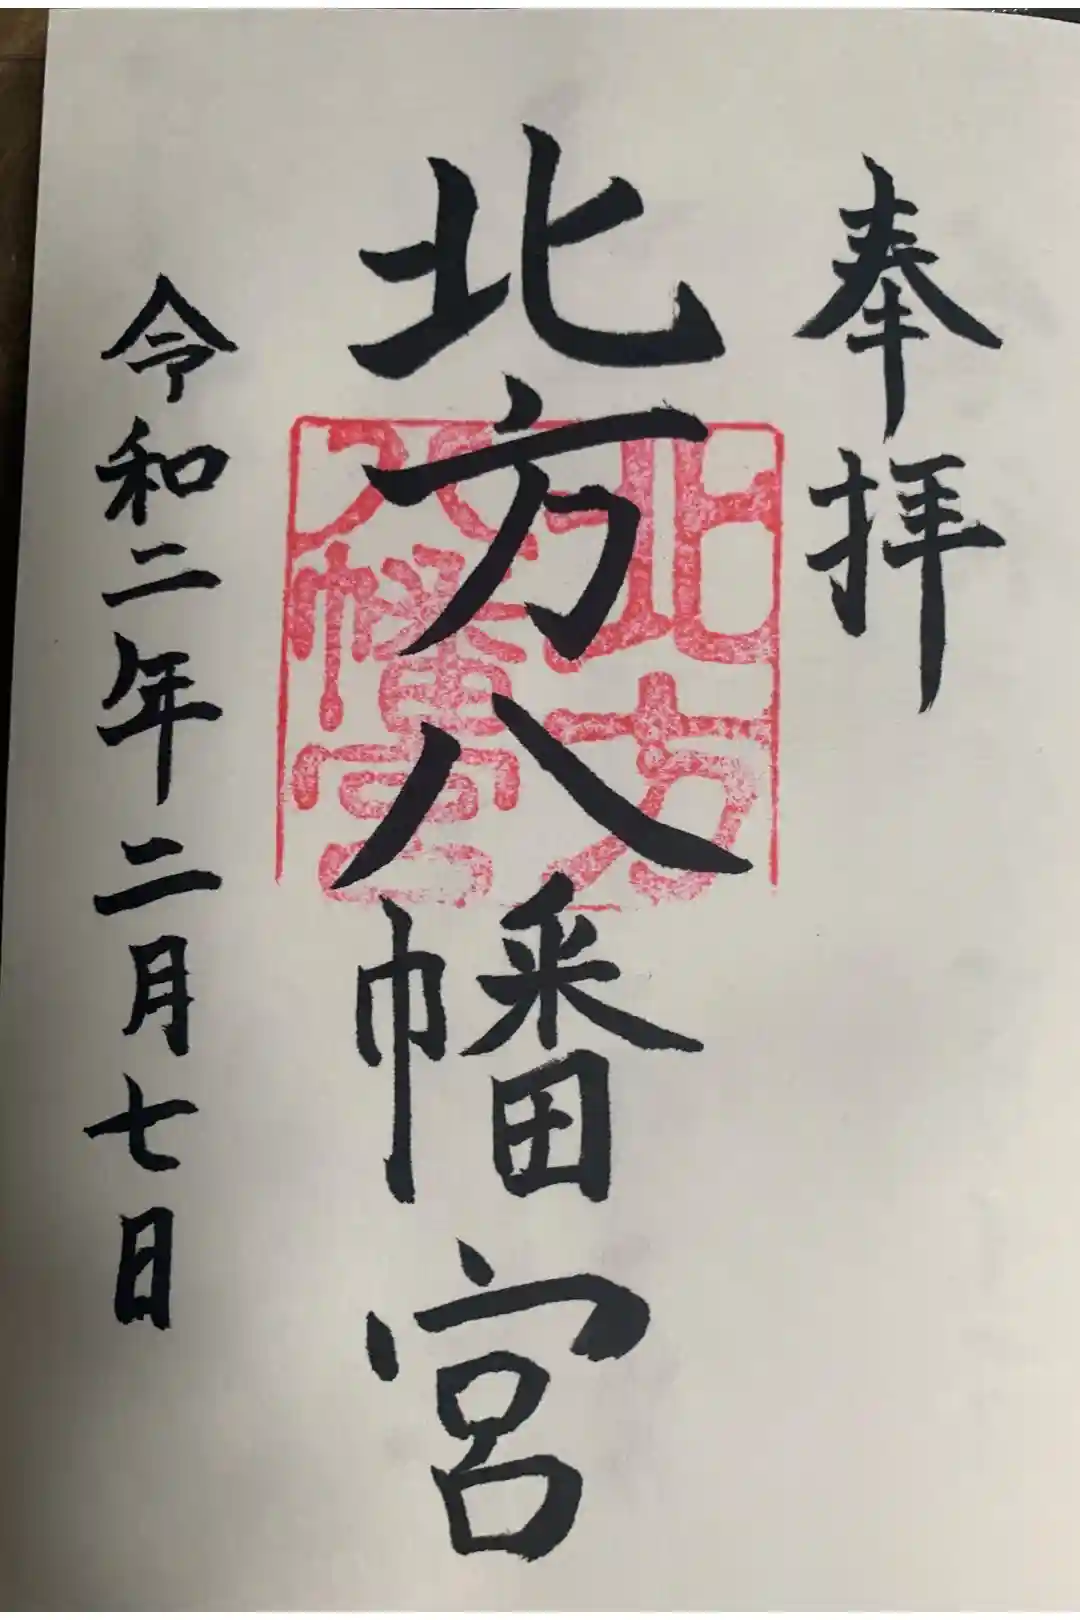 奉拝
北方八幡宮
北方
八幡宮
令和二年二月七日